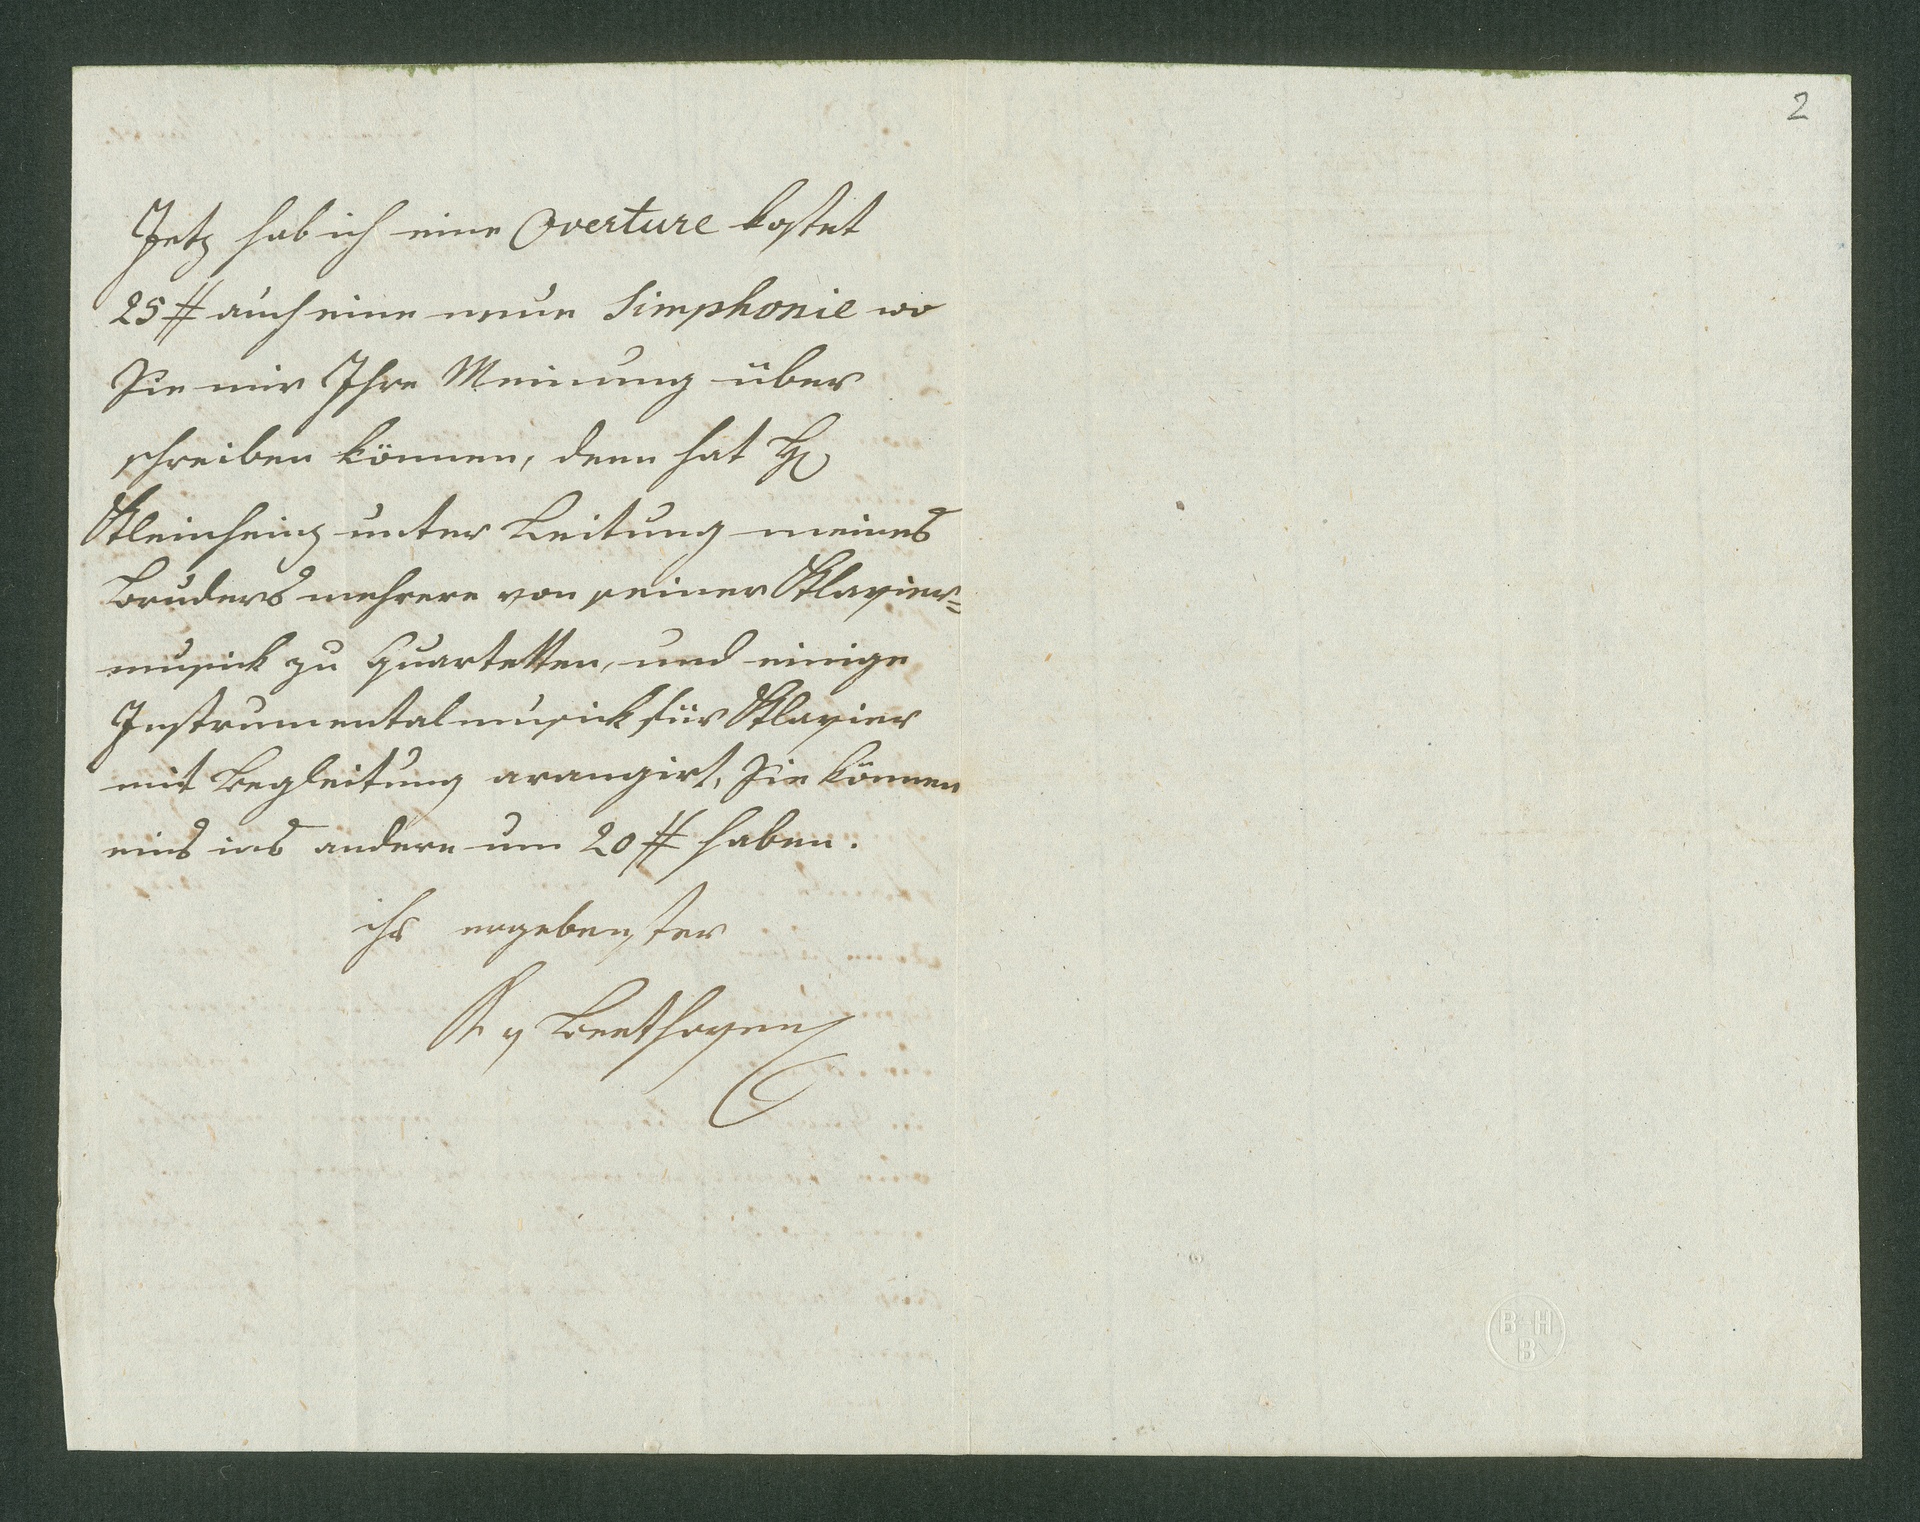 2
Jetz hab ich eine Overture kostet
25 # auch eine neue Simphonie wo
Sie mir Ihre Meinung über
schreiben können, denn hat H.
Kleinheinz unter Leitung meines
Bruders mehrere von seiner Klavier=
musick zu Quartetten, und einige
Instrumentalmusick für Klavier
mit Begleitung arangirt, Sie können
eins ins andere um 20 # haben.
ihr ergebenster
K. v Beethoven
B H
B